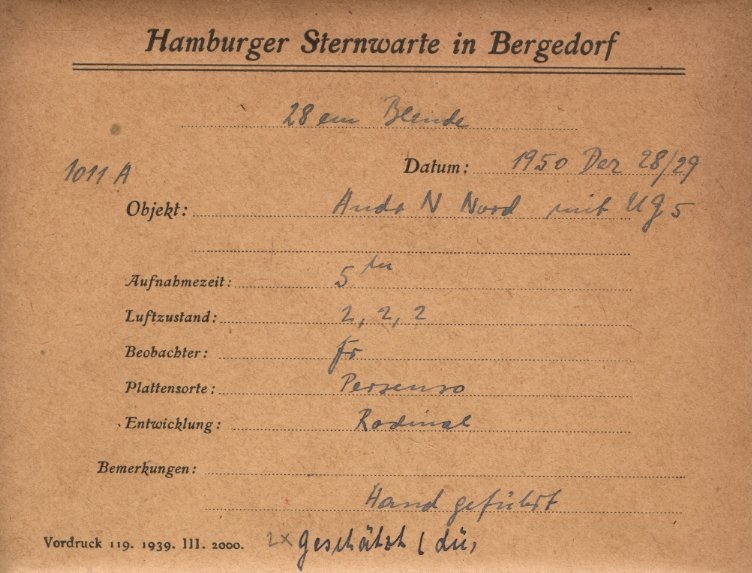 Hamburger Sternwarte in Bergedorf
28 cm Blende
1011 A
Datum: 1950 Dez 28/29
Objekt: Andr N Nord mit UG5
Aufnahmezeit: 5
Luftzustand: 2, 2, 2
Beobachter: Fr
Plattensorte: Persenso
Entwicklung: Rodinal
Bemerkungen:
Hand geführt
Vordruck 119. 1939. III. 2000. 2x geschätzt (dü,